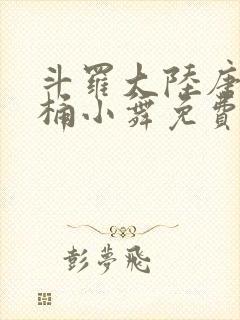 斗羅大陸唐
桶小舞免費
彭夢飛